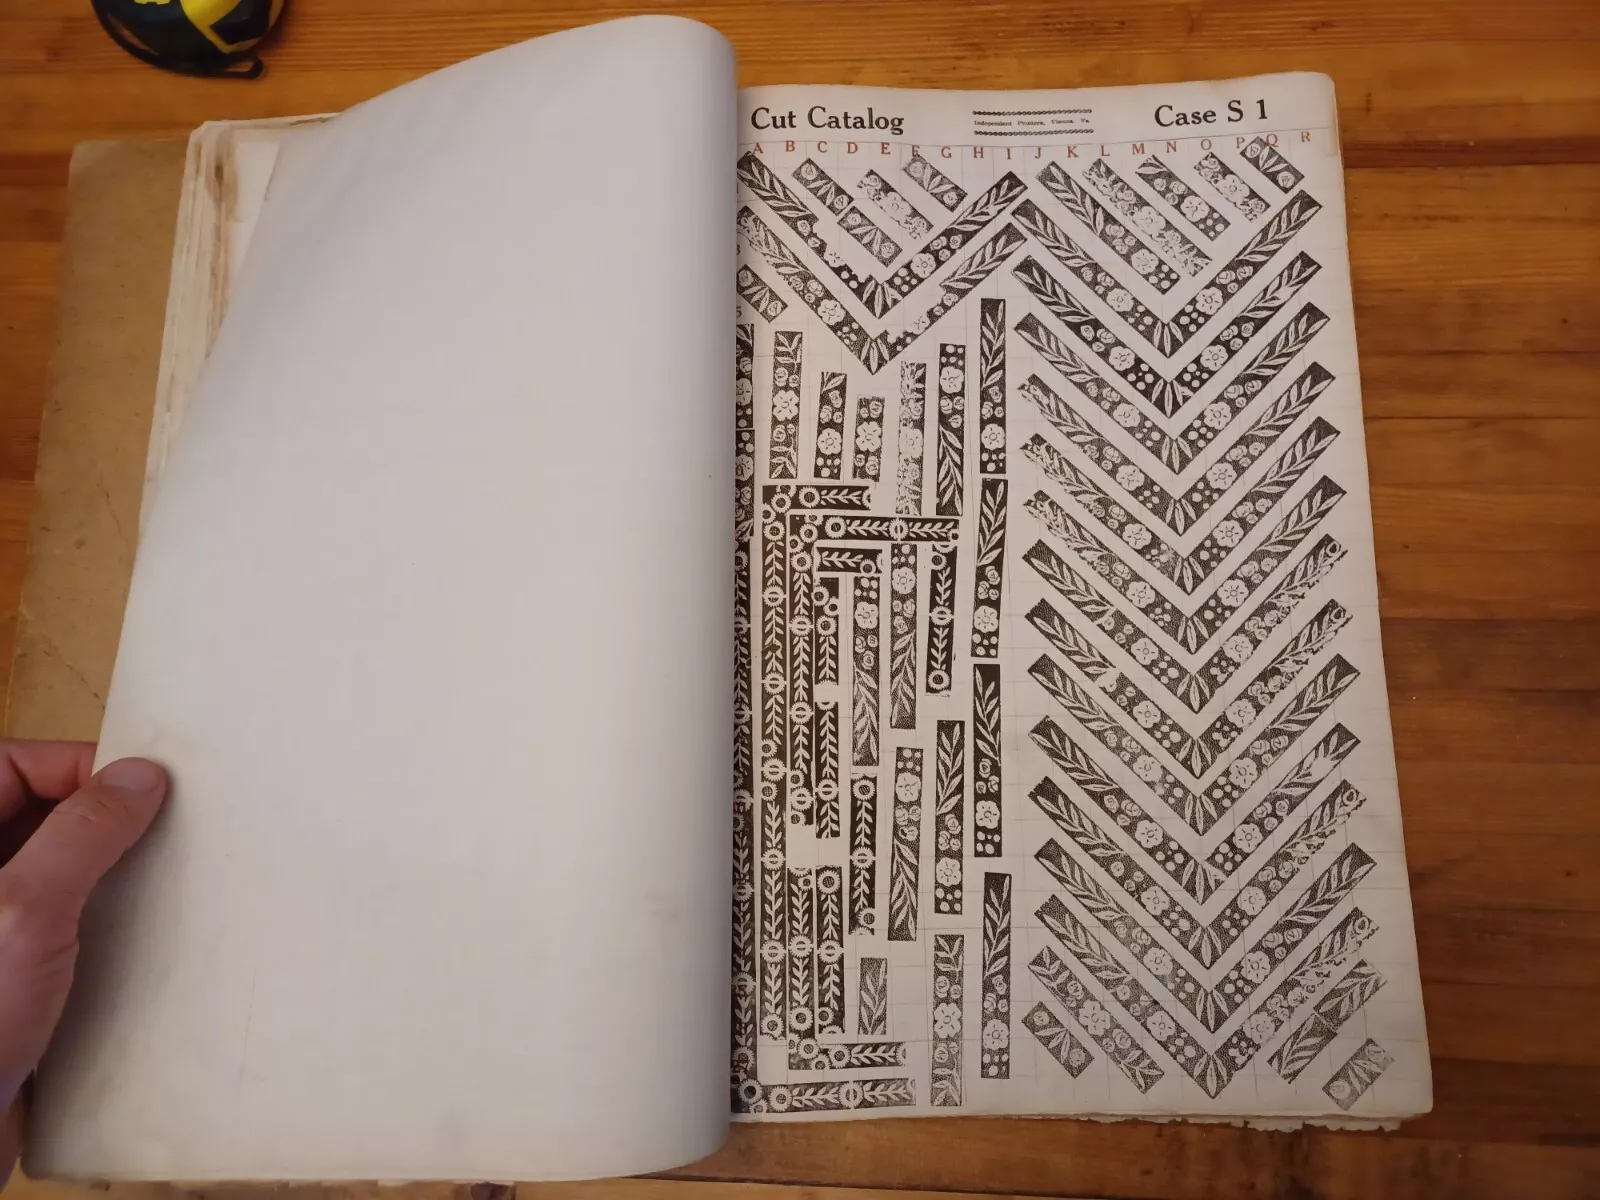 Cut Catalog
Independent Printers, Vienna, Va.
Case S 1
A B C D E F G H I J K L M N O P Q R